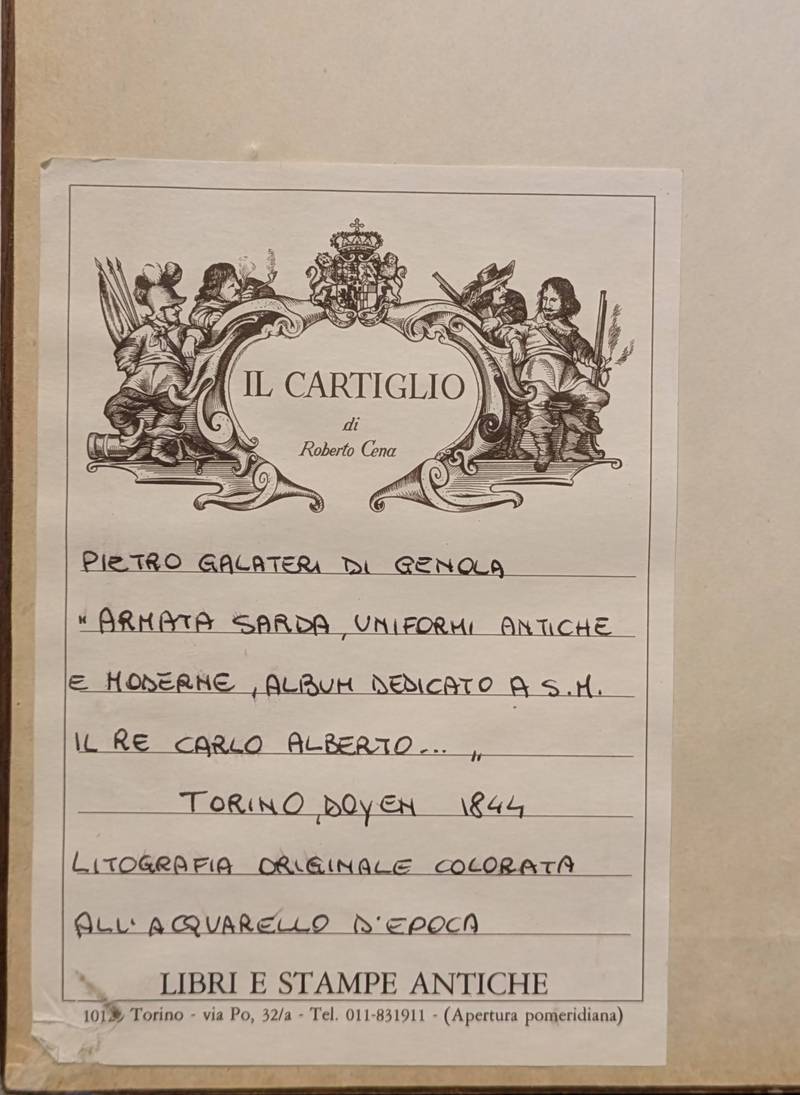 IL CARTIGLIO
di
Roberto Cena
PIETRO GALATERI DI GENOLA
"ARMATA SARDA, UNIFORMI ANTICHE
E MODERNE, ALBUM DEDICATO A S.M.
IL RE CARLO ALBERTO... "
TORINO, DOYEN 1844
LITOGRAFIA ORIGINALE COLORATA
ALL'ACQUARELLO D'EPOCA
LIBRI E STAMPE ANTICHE
Torino - via Po, 32/a - Tel. 011-831911 - (Apertura pomeridiana)